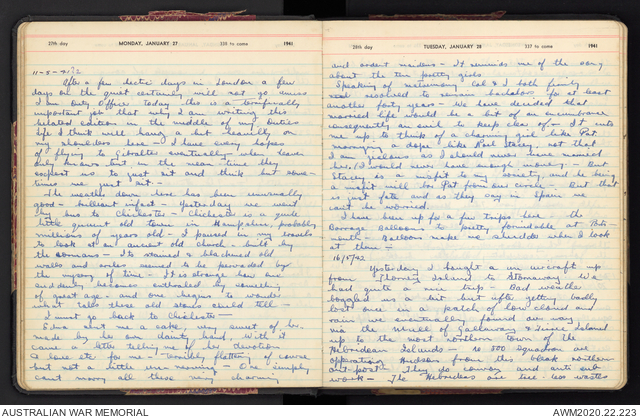 27th day MONDAY, JANUARY 27 338 to come 1941
11-5-42
After a few hectic days in London a few
days on the quiet certainly will not go amiss
I am Duty Officer today this is a terrifically
important job that why I am writing this
belated edition in the middle of my duties
life I think will hang a bit heavily on
my shoulders here - I have every hopes
of flying to Gibraltar eventually when heaven
only knows but in the mean time they
expect us to just sit and think but some-
times we just sit -
The weather down here has been unusually
good - brilliant infact - Yesterday we went
by bus to Chichester - Chichester is a quite
little quaint old town in Hampshire, probably
millions of years old - I paused in my travels
to look at an ancient old church - built by
the Normans - Its stained & blackened old
walls and aisles seemed to be pervaded by
the mystery of time - It is strange how one
suddenly becomes enthralled by something
of great age - and one begins to wonder
what tales these old stones could tell -
I must go back to Chichester
Edna sent me a cake, very sweet of her
made by her own dainty hand With it
came a letter telling me of her devotion
& love etc for me - Terribly flattering of course
but not a little un-nerving - One simply
can't marry all these very charming
28th day TUESDAY, JANUARY 28 337 to come 1941
and ardent maidens - It reminds me of the song
about the ten pretty girls
Speaking of matrimony Col & I both firmly
resolved to remain bachelors for at least
another forty years - We have decided that
married life would be a bit of an encumbrance
consequently as such to keep clear of it into
me up to think of a charming girl like Pat
marrying a dope like Paul Stacey, not that
I am jealous as I should never have married
her, (I would never have enough money) - But
Stacey is a misfit to my society, and he being
a misfit will bar Pat from our circle - But that
is just fate and as they say in Spain we
can't be worried.
I have been up for a few trips here the
Barrage Balloons is pretty formidable at Ports-
mouth - Balloons make me shudder when I look
at them -
16/5/42
Yesterday I brought a an aircraft up
from Thorney Island to Stornaway We
had quite a nice trip - Bad weather
boggled us a bit but after getting badly
lost once in a patch of low cloud and
rain we eventually found our way
via the Mull of Galloway & Tiree Island
up to the most northern town of the
Hebridean Islands - 500 squadron are
operating Hudson from this bleak northern
out-post - They do convoy and anti sub
work - The Hebrides are tree less wastes
AUSTRALIAN WAR MEMORIAL AWM2020.22.223